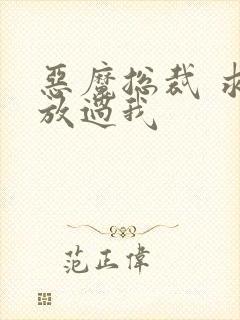 恶魔总裁 求
放过我
范正偉